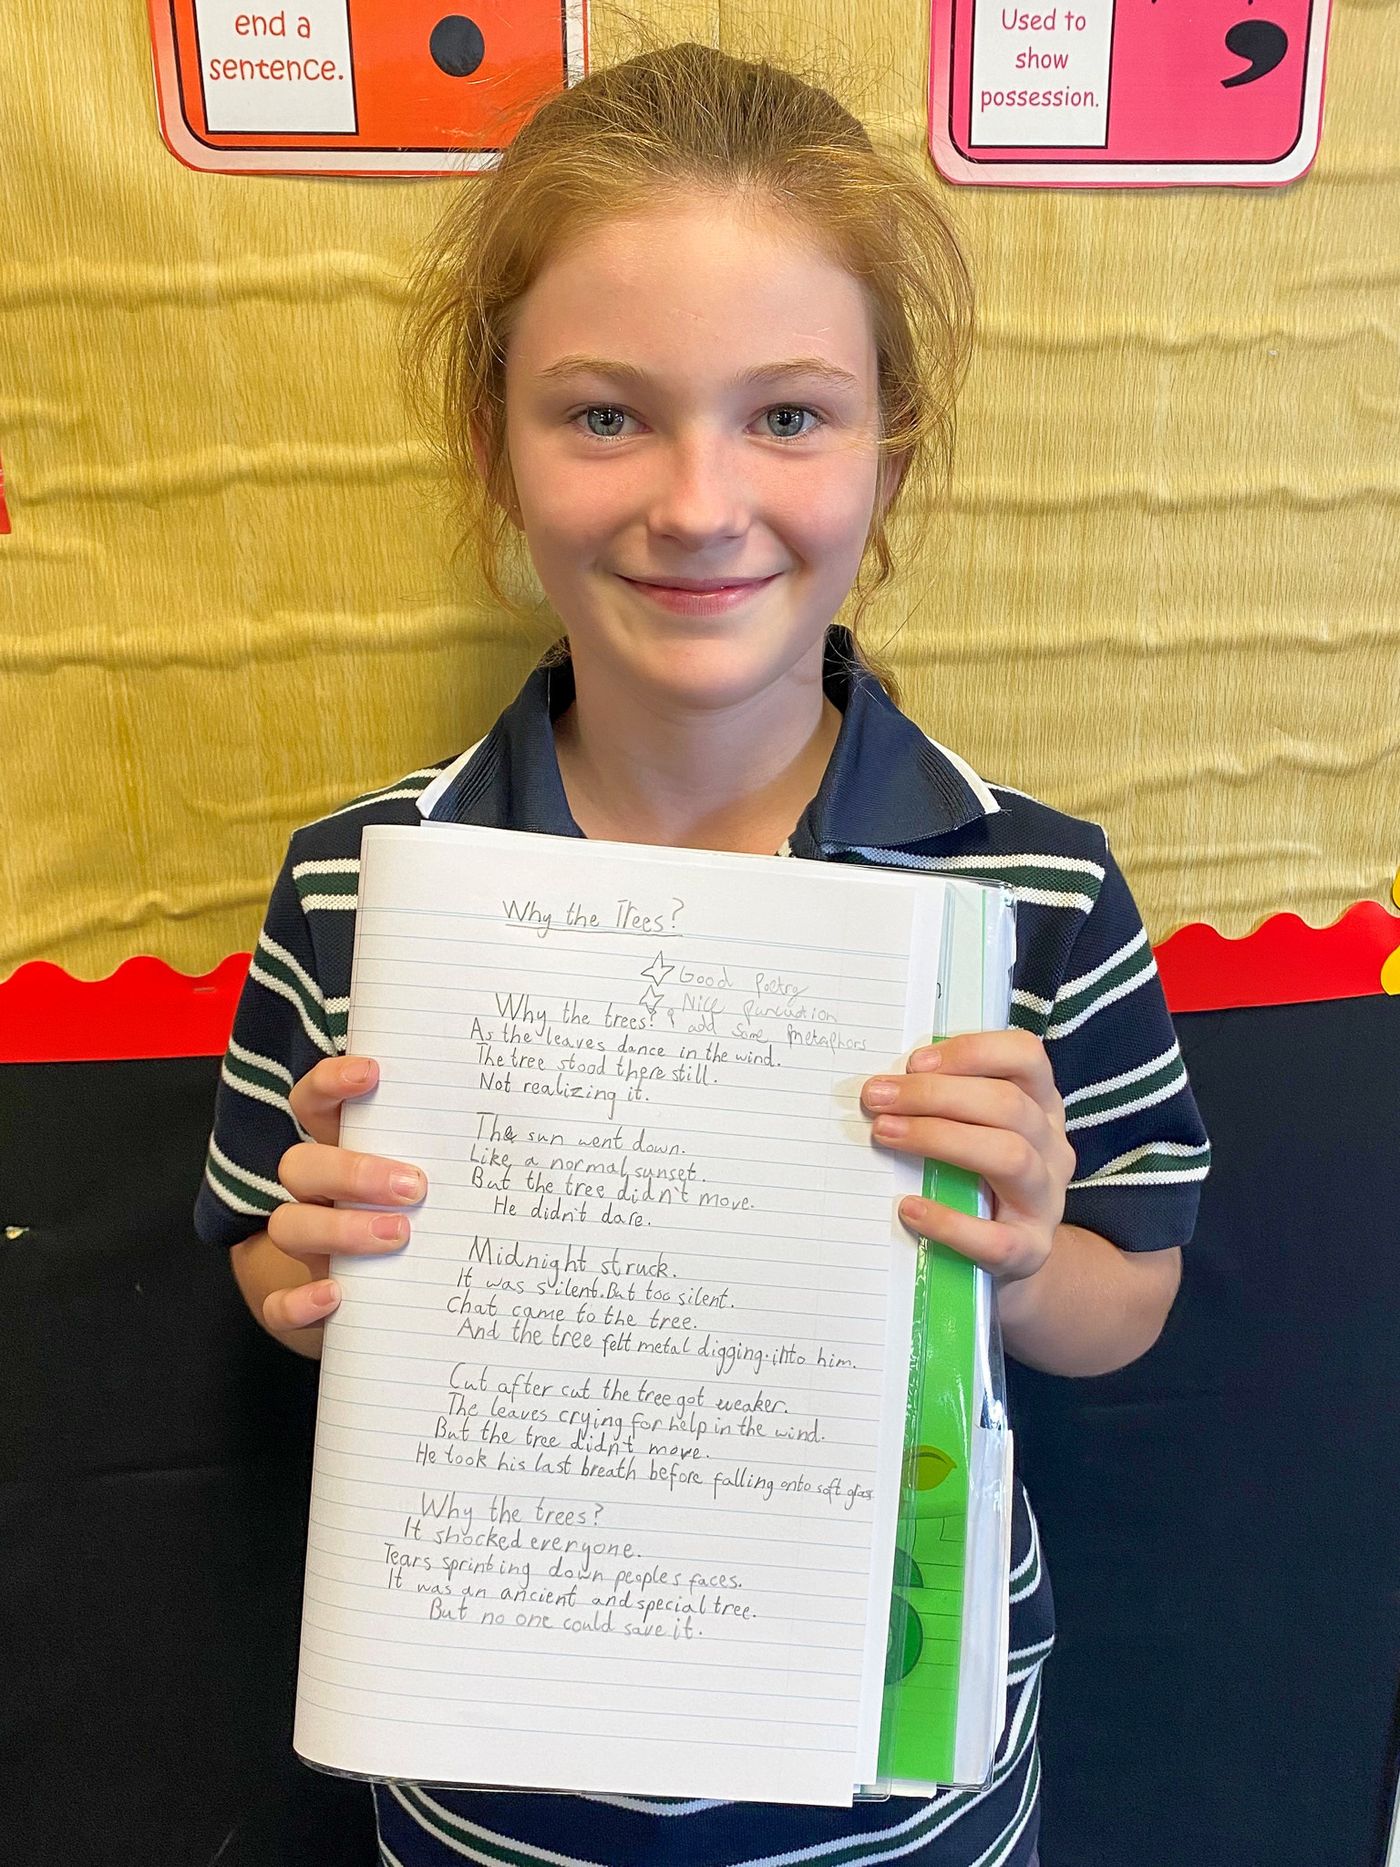 end a
sentence.
Used to
show
possession.
Why the Trees?
Good Poetry
Nice Puncation
add some metaphors
Why the trees?
As the leaves dance in the wind.
The tree stood there still.
Not realizing it.
The sun went down.
Like a normal sunset.
But the tree didn't move.
He didn't dare.
Midnight struck.
It was silent. But too silent.
Chat came to the tree.
And the tree felt metal digging into him.
Cut after cut the tree got weaker.
The leaves crying for help in the wind.
But the tree didn't move.
He took his last breath before falling onto soft
Why the trees?
It shocked everyone.
Tears sprinting down peoples faces.
It was an ancient and special tree.
But no one could save it.